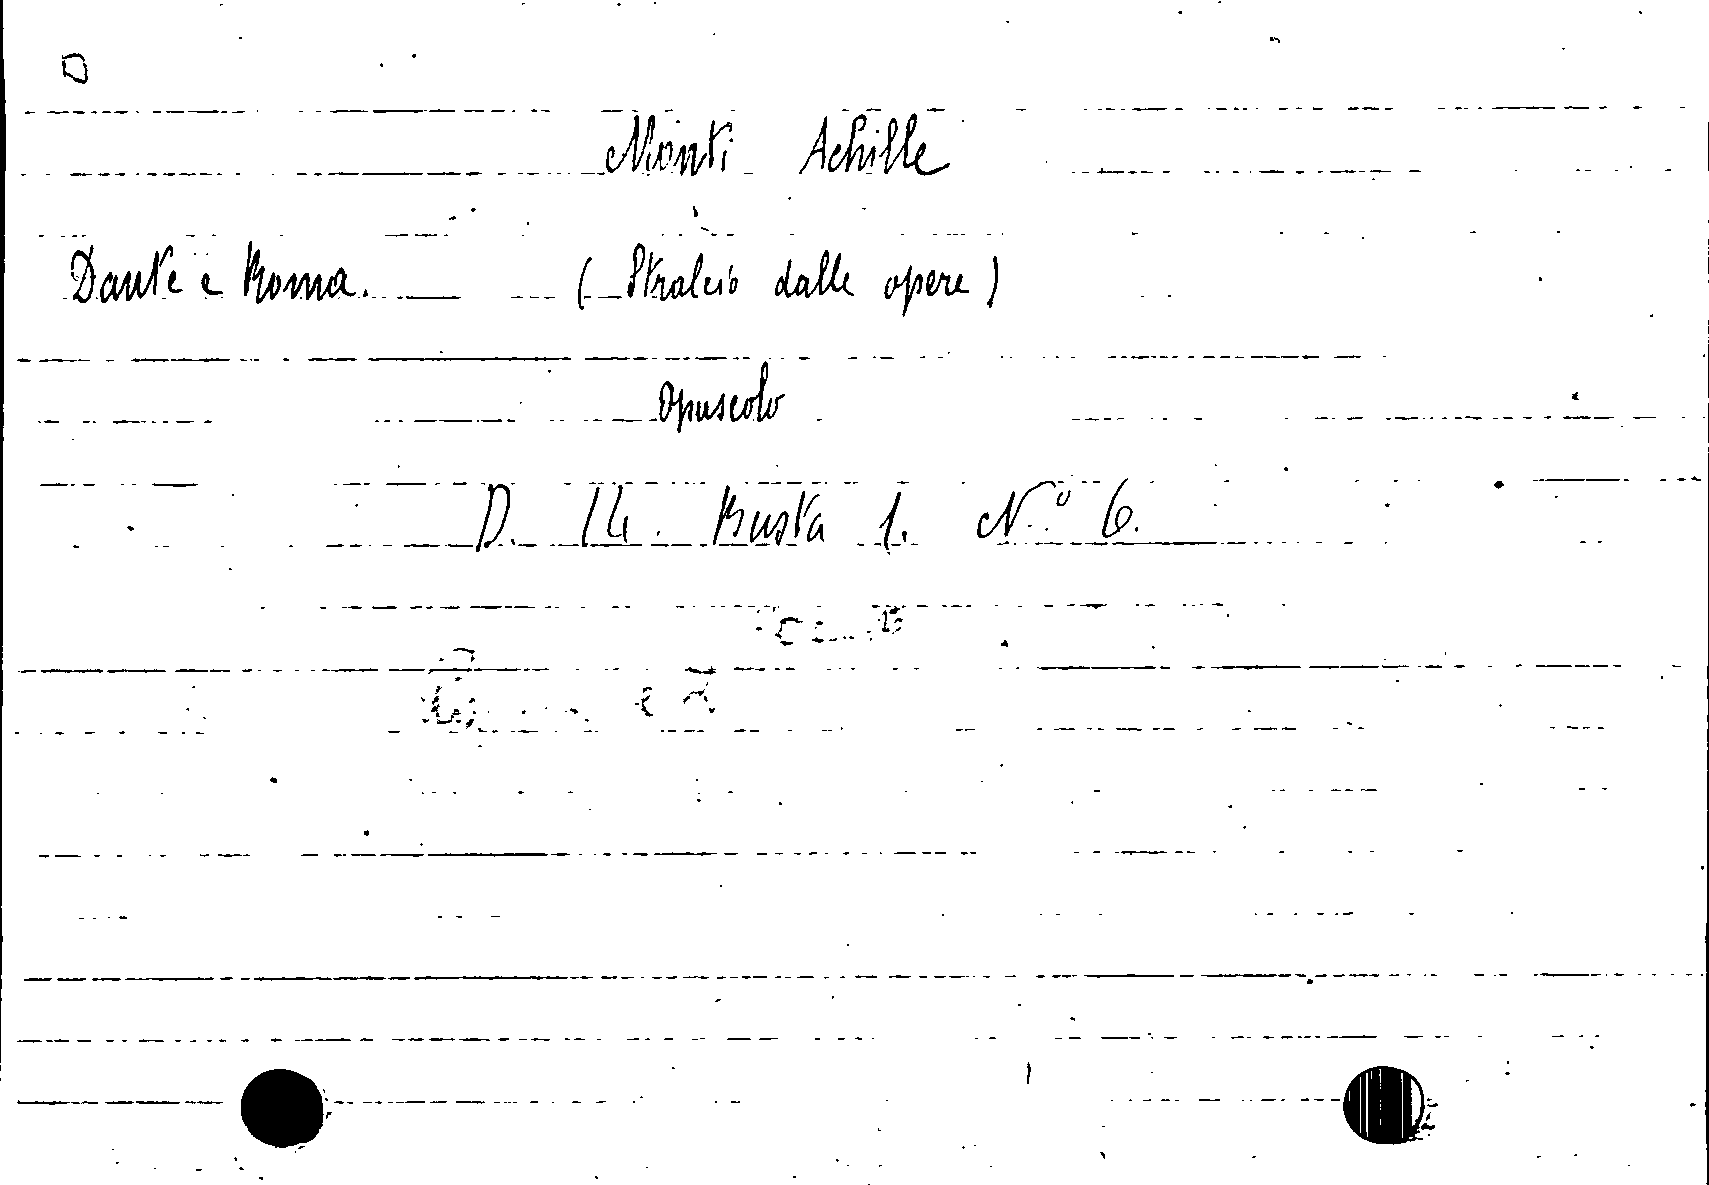 Monti Achille
Dante e Roma. (Stralcio dalle opere)
Opuscolo
D. 14. Busta 1. N.º 6.